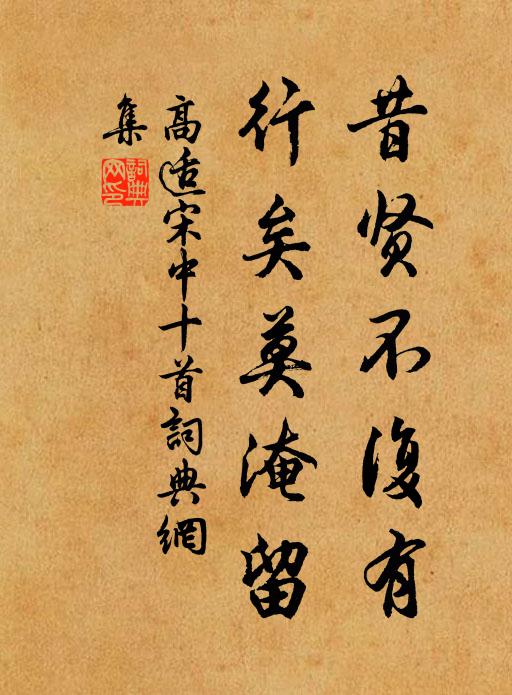 昔贤不復有
行矣莫淹留
高适宋中十首詞典網
集
詞典網印